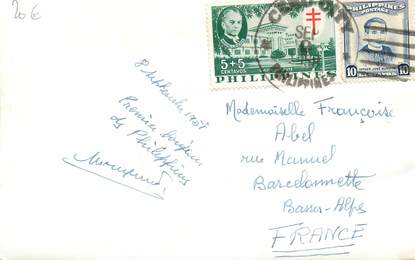 20 €
5+5
CENTAVOS
PHILIPPINES
PHILIPPINES
POSTAGE
10 10
SEP
PHILIPPINES
8 Septembre
Première
des Philippines
Mademoiselle Françoise
Abel
rue Manuel
Barcelonnette
Basses-Alpes
FRANCE